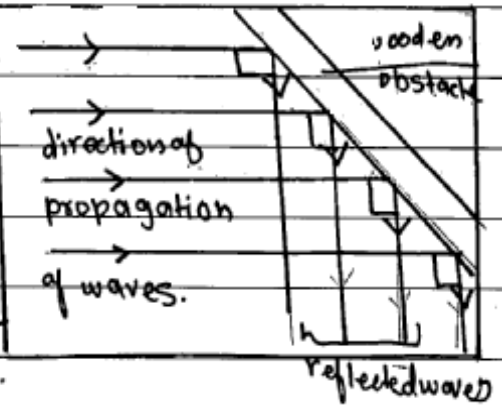 wooden
obstacle
direction of
propagation
of waves.
reflected waves